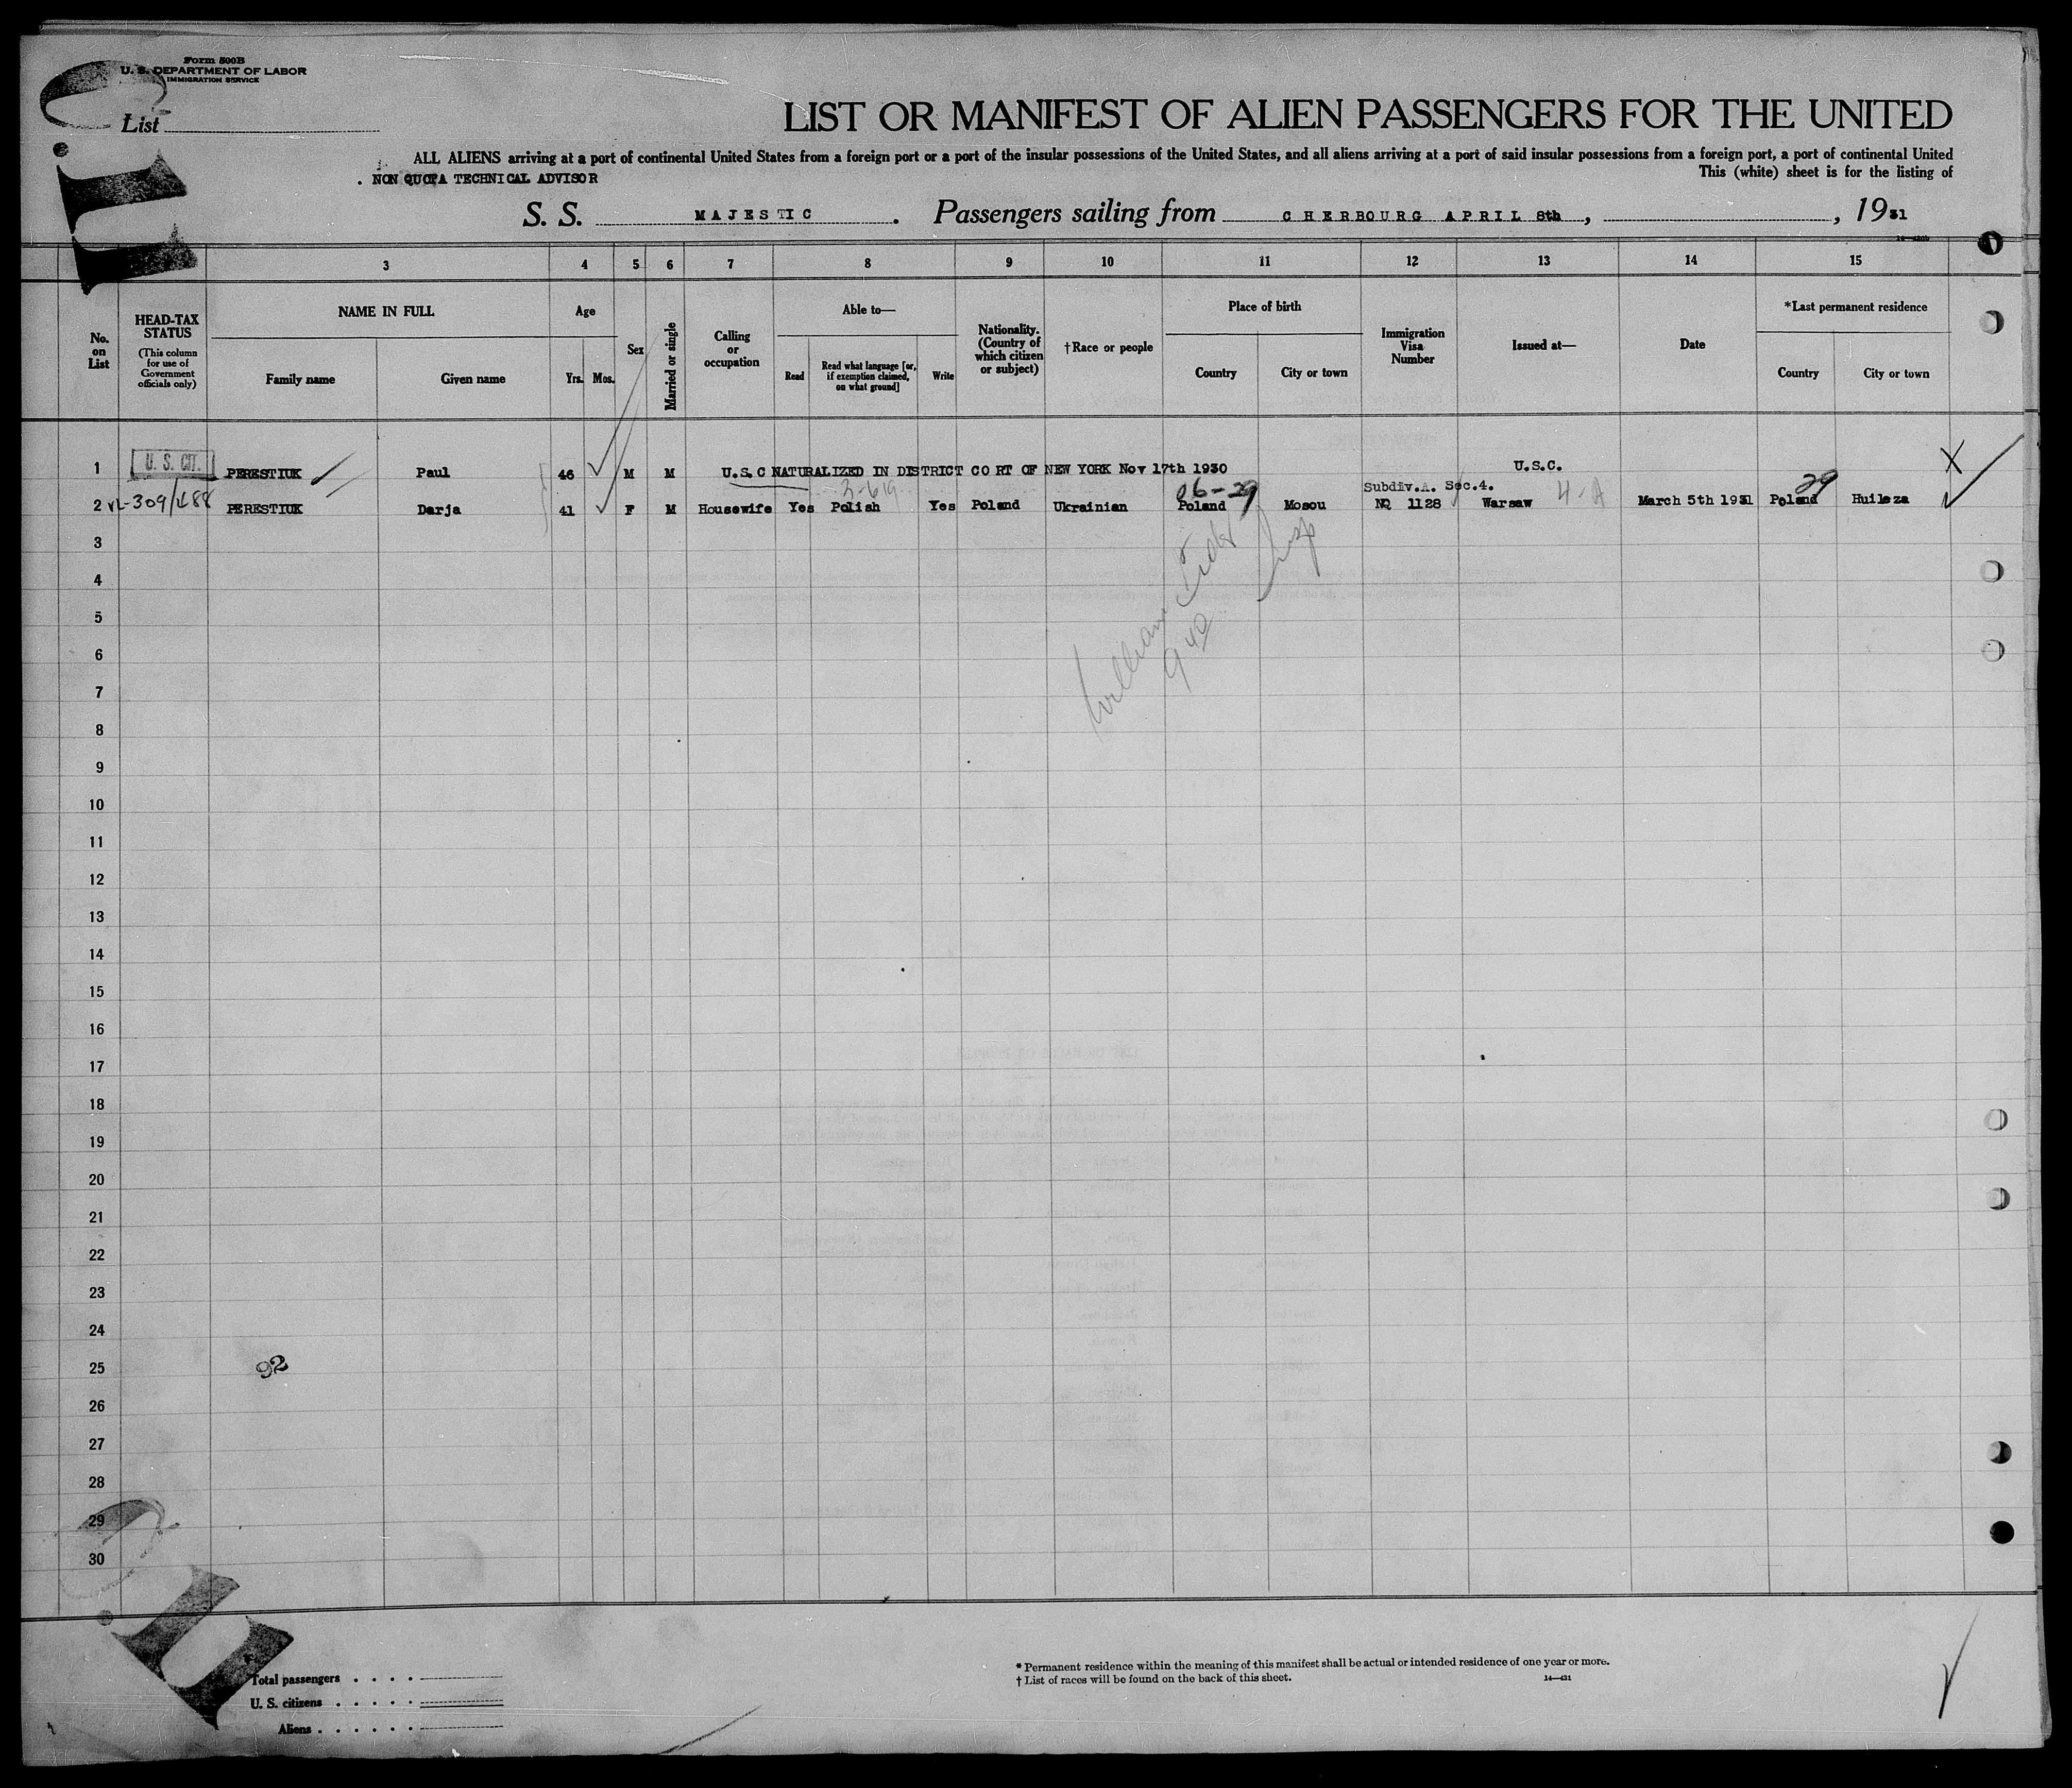 Form 500B
U. S. DEPARTMENT OF LABOR
IMMIGRATION SERVICE
List
LIST OR MANIFEST OF ALIEN PASSENGERS FOR THE UNITED
ALL ALIENS arriving at a port of continental United States from a foreign port or a port of the insular possessions of the United States, and all aliens arriving at a port of said insular possessions from a foreign port, a port of continental United
NON QUOTA TECHNICAL ADVISOR
This (white) sheet is for the listing of
S. S. MAJESTIC. Passengers sailing from CHERBOURG APRIL 8th, , 1931
3 4 5 6 7 8 9 10 11 12 13 14 15
No. on List
HEAD-TAX STATUS
(This column for use of Government officials only)
NAME IN FULL
Family name
Given name
Age
Yrs. Mos.
Sex
Married or single
Calling or occupation
Able to—
Read
Read what language [or, if exemption claimed, on what ground]
Write
Nationality. (Country of which citizen or subject)
†Race or people
Place of birth
Country
City or town
Immigration Visa Number
Issued at—
Date
*Last permanent residence
Country
City or town
1 U. S. CIT. PERESTIUK Paul 46 M M U.S.C NATURALIZED IN DISTRICT CO RT OF NEW YORK Nov 17th 1930 U.S.C. X
3-619 06-29 Subdiv.A. Sec.4. 29
2 PERESTIUK Darja 41 F M Housewife Yes Polish Yes Poland Ukrainian Poland Mosou NQ 1128 Warsaw 4-A March 5th 1931 Poland Huileza
3
4
5
William
6
940
7
8
9
10
11
12
13
14
15
16
17
18
19
20
21
22
23
24
25
92
26
27
28
29
30
Total passengers
U. S. citizens
Aliens
* Permanent residence within the meaning of this manifest shall be actual or intended residence of one year or more.
† List of races will be found on the back of this sheet.
14—431